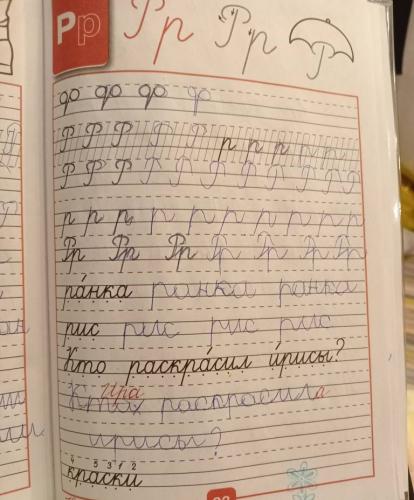 Рр Рр Рр Р
ф ф ф ф
Р Р Р Р Р р р р р р
Р Р Р Р Р Р Р Р Р Р Р
р р р р р р р р р р
Рр Рр Рр Рр Рр Рр Рр
ра́нка ранка ранка
рис рис рис рис
Кто раскра́сил и́рисы?
Ира
раскрасила
ирисы?
4 5 3 1 2
краски